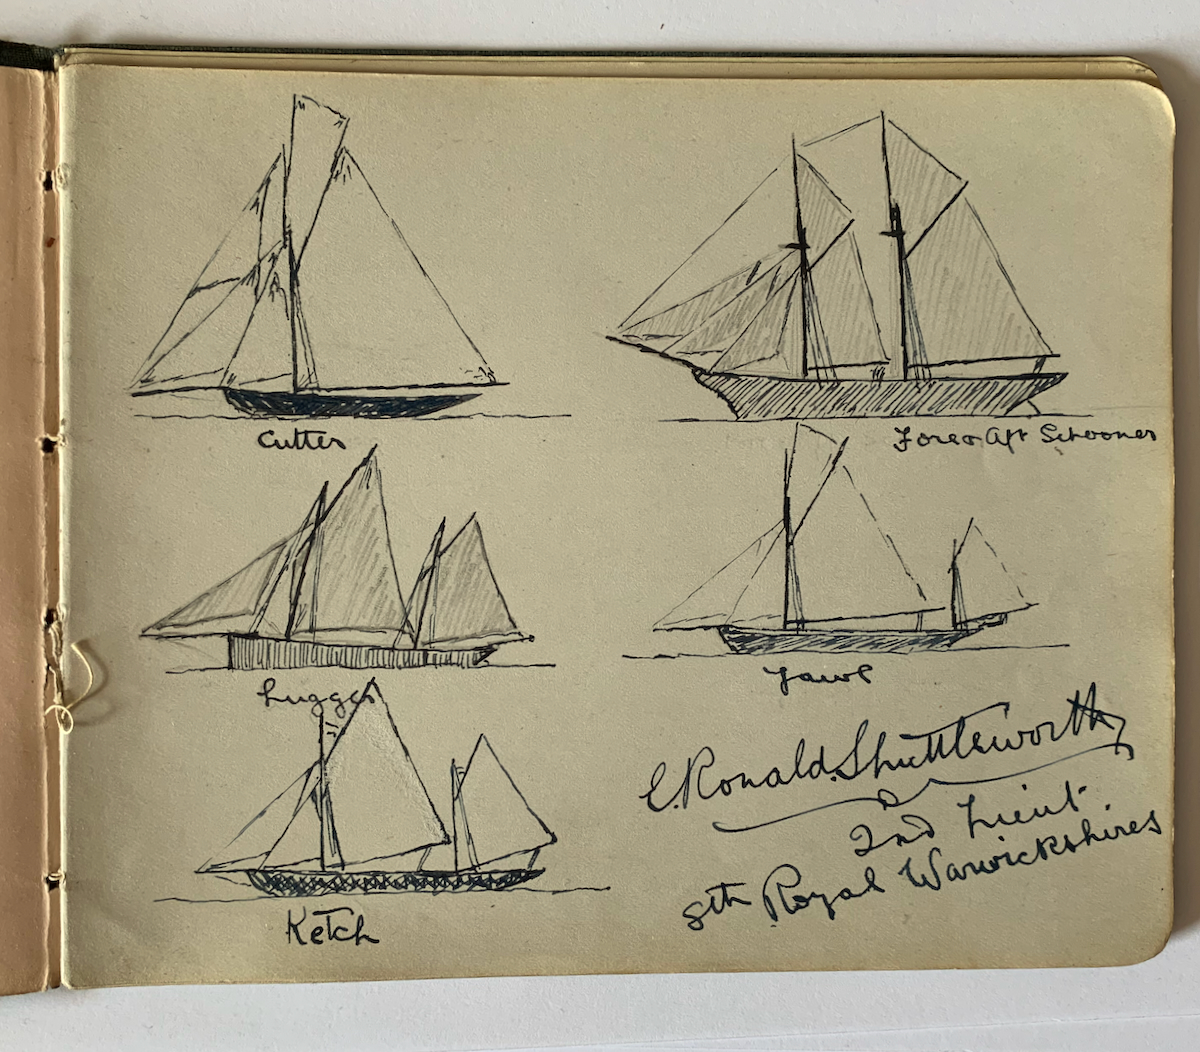 Cutter
Fore & Aft Schooner
Lugger
Yawl
Ketch
C. Ronald. Shuttleworth
2nd Lieut
8th Royal Warwickshires